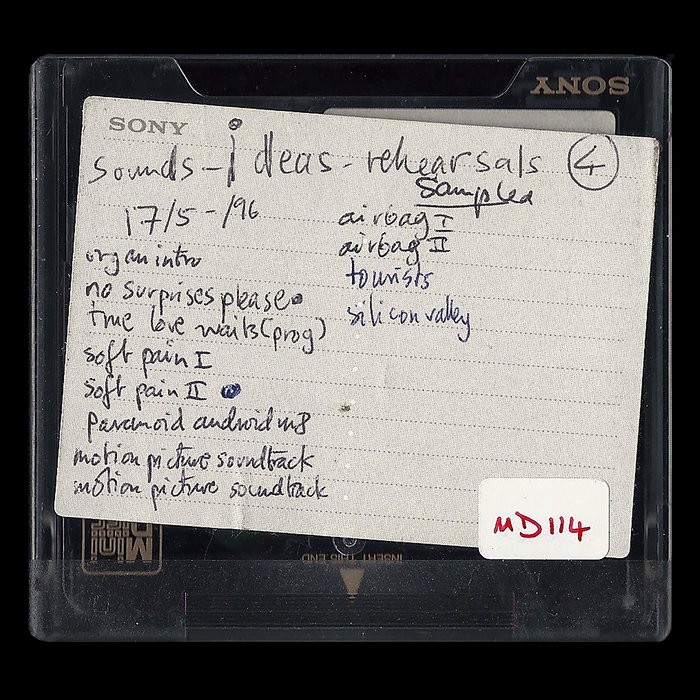 SONY
SONY
sounds - ideas - rehearsals ④
17/5 -/96
organ intro
no surprises please
true love waits (prog)
soft pain I
soft pain II
paranoid android
motion picture soundtrack
motion picture soundtrack
Samples
airbag I
airbag II
tourists
silicon valley
MD 114
INSERT THIS END
Mini Disc